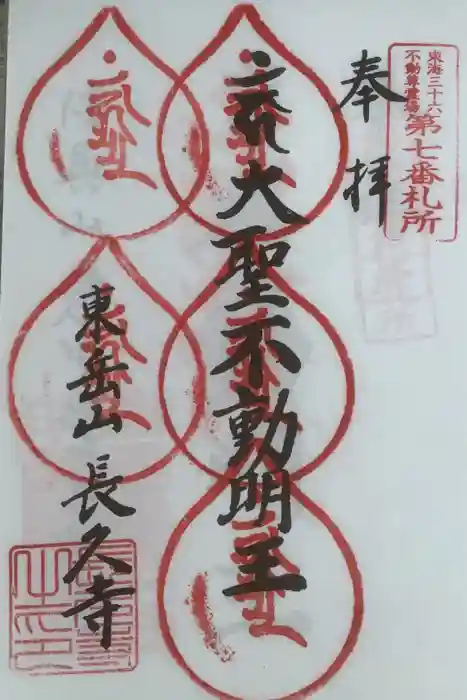 東海三十六
不動尊霊場
第七番札所
奉拝
大聖不動明王
東岳山
長久寺